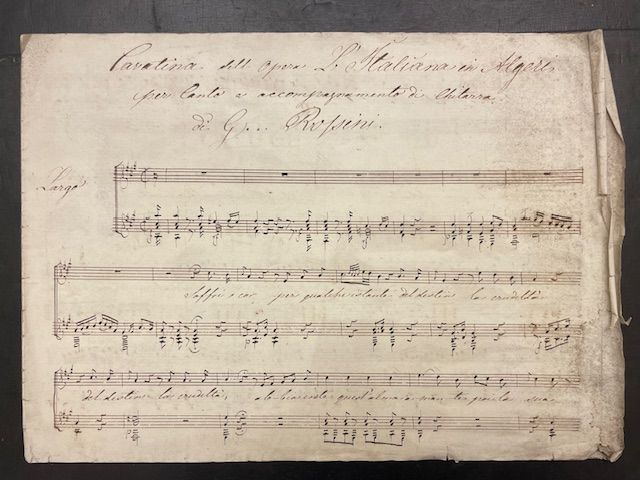 Cavatina dell opera L'Italiána in Algeri
per Canto e accompagnamento di Chitarra
di G... Rossini.
Largo
Soffri o cor, per qualche istante del destino la crudeltà
del destino la crudeltà, quest'alma a